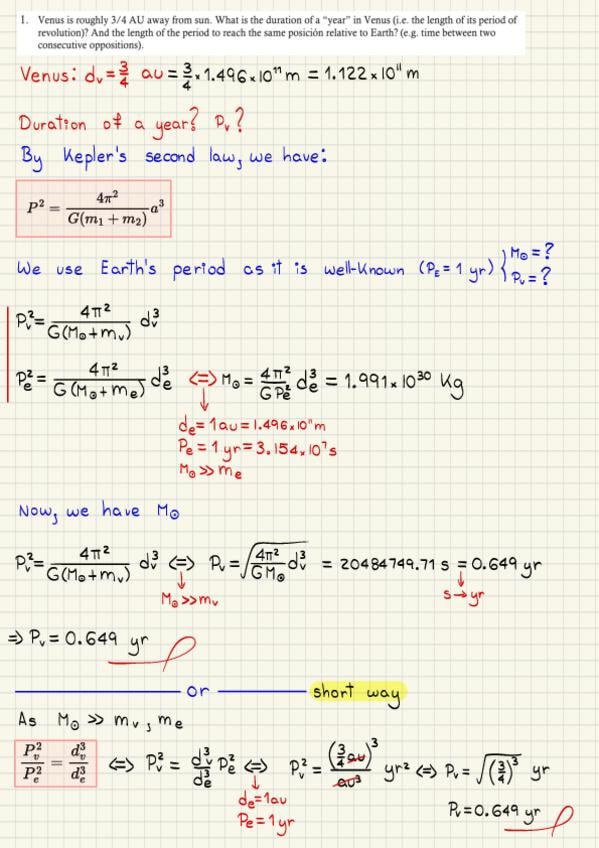 1. Venus is roughly 3/4 AU away from sun. What is the duration of a "year" in Venus (i.e. the length of its period of
revolution)? And the length of the period to reach the same posición relative to Earth? (e.g. time between two
consecutive oppositions).
Venus: dᵥ = 3/4 au = 3/4 × 1.496 × 10¹¹ m = 1.122 × 10¹¹ m
Duration of a year? Pᵥ?
By Kepler's second law, we have:
P² = 4π² / G(m₁ + m₂) a³
We use Earth's period as it is well-known (P_E = 1 yr) { M⊙ = ?
Pᵥ = ?
Pᵥ² = 4π² / G(M⊙ + mᵥ) dᵥ³
Pₑ² = 4π² / G(M⊙ + mₑ) dₑ³ <=> M⊙ = 4π² / G Pₑ² dₑ³ = 1.991 × 10³⁰ Kg
↓
dₑ = 1au = 1.496 × 10¹¹ m
Pₑ = 1 yr = 3.154 × 10⁷ s
M⊙ >> mₑ
Now, we have M⊙
Pᵥ² = 4π² / G(M⊙ + mᵥ) dᵥ³ <=> Pᵥ = √(4π² / G M⊙ dᵥ³) = 20484749.71 s = 0.649 yr
↓ ↓
M⊙ >> mᵥ s → yr
=> Pᵥ = 0.649 yr
or short way
As M⊙ >> mᵥ, mₑ
Pᵥ² / Pₑ² = dᵥ³ / dₑ³ <=> Pᵥ² = dᵥ³ / dₑ³ Pₑ² <=> Pᵥ² = (3/4 au)³ / au³ yr² <=> Pᵥ = √(3/4)³ yr
↓
dₑ = 1au
Pₑ = 1 yr
Pᵥ = 0.649 yr